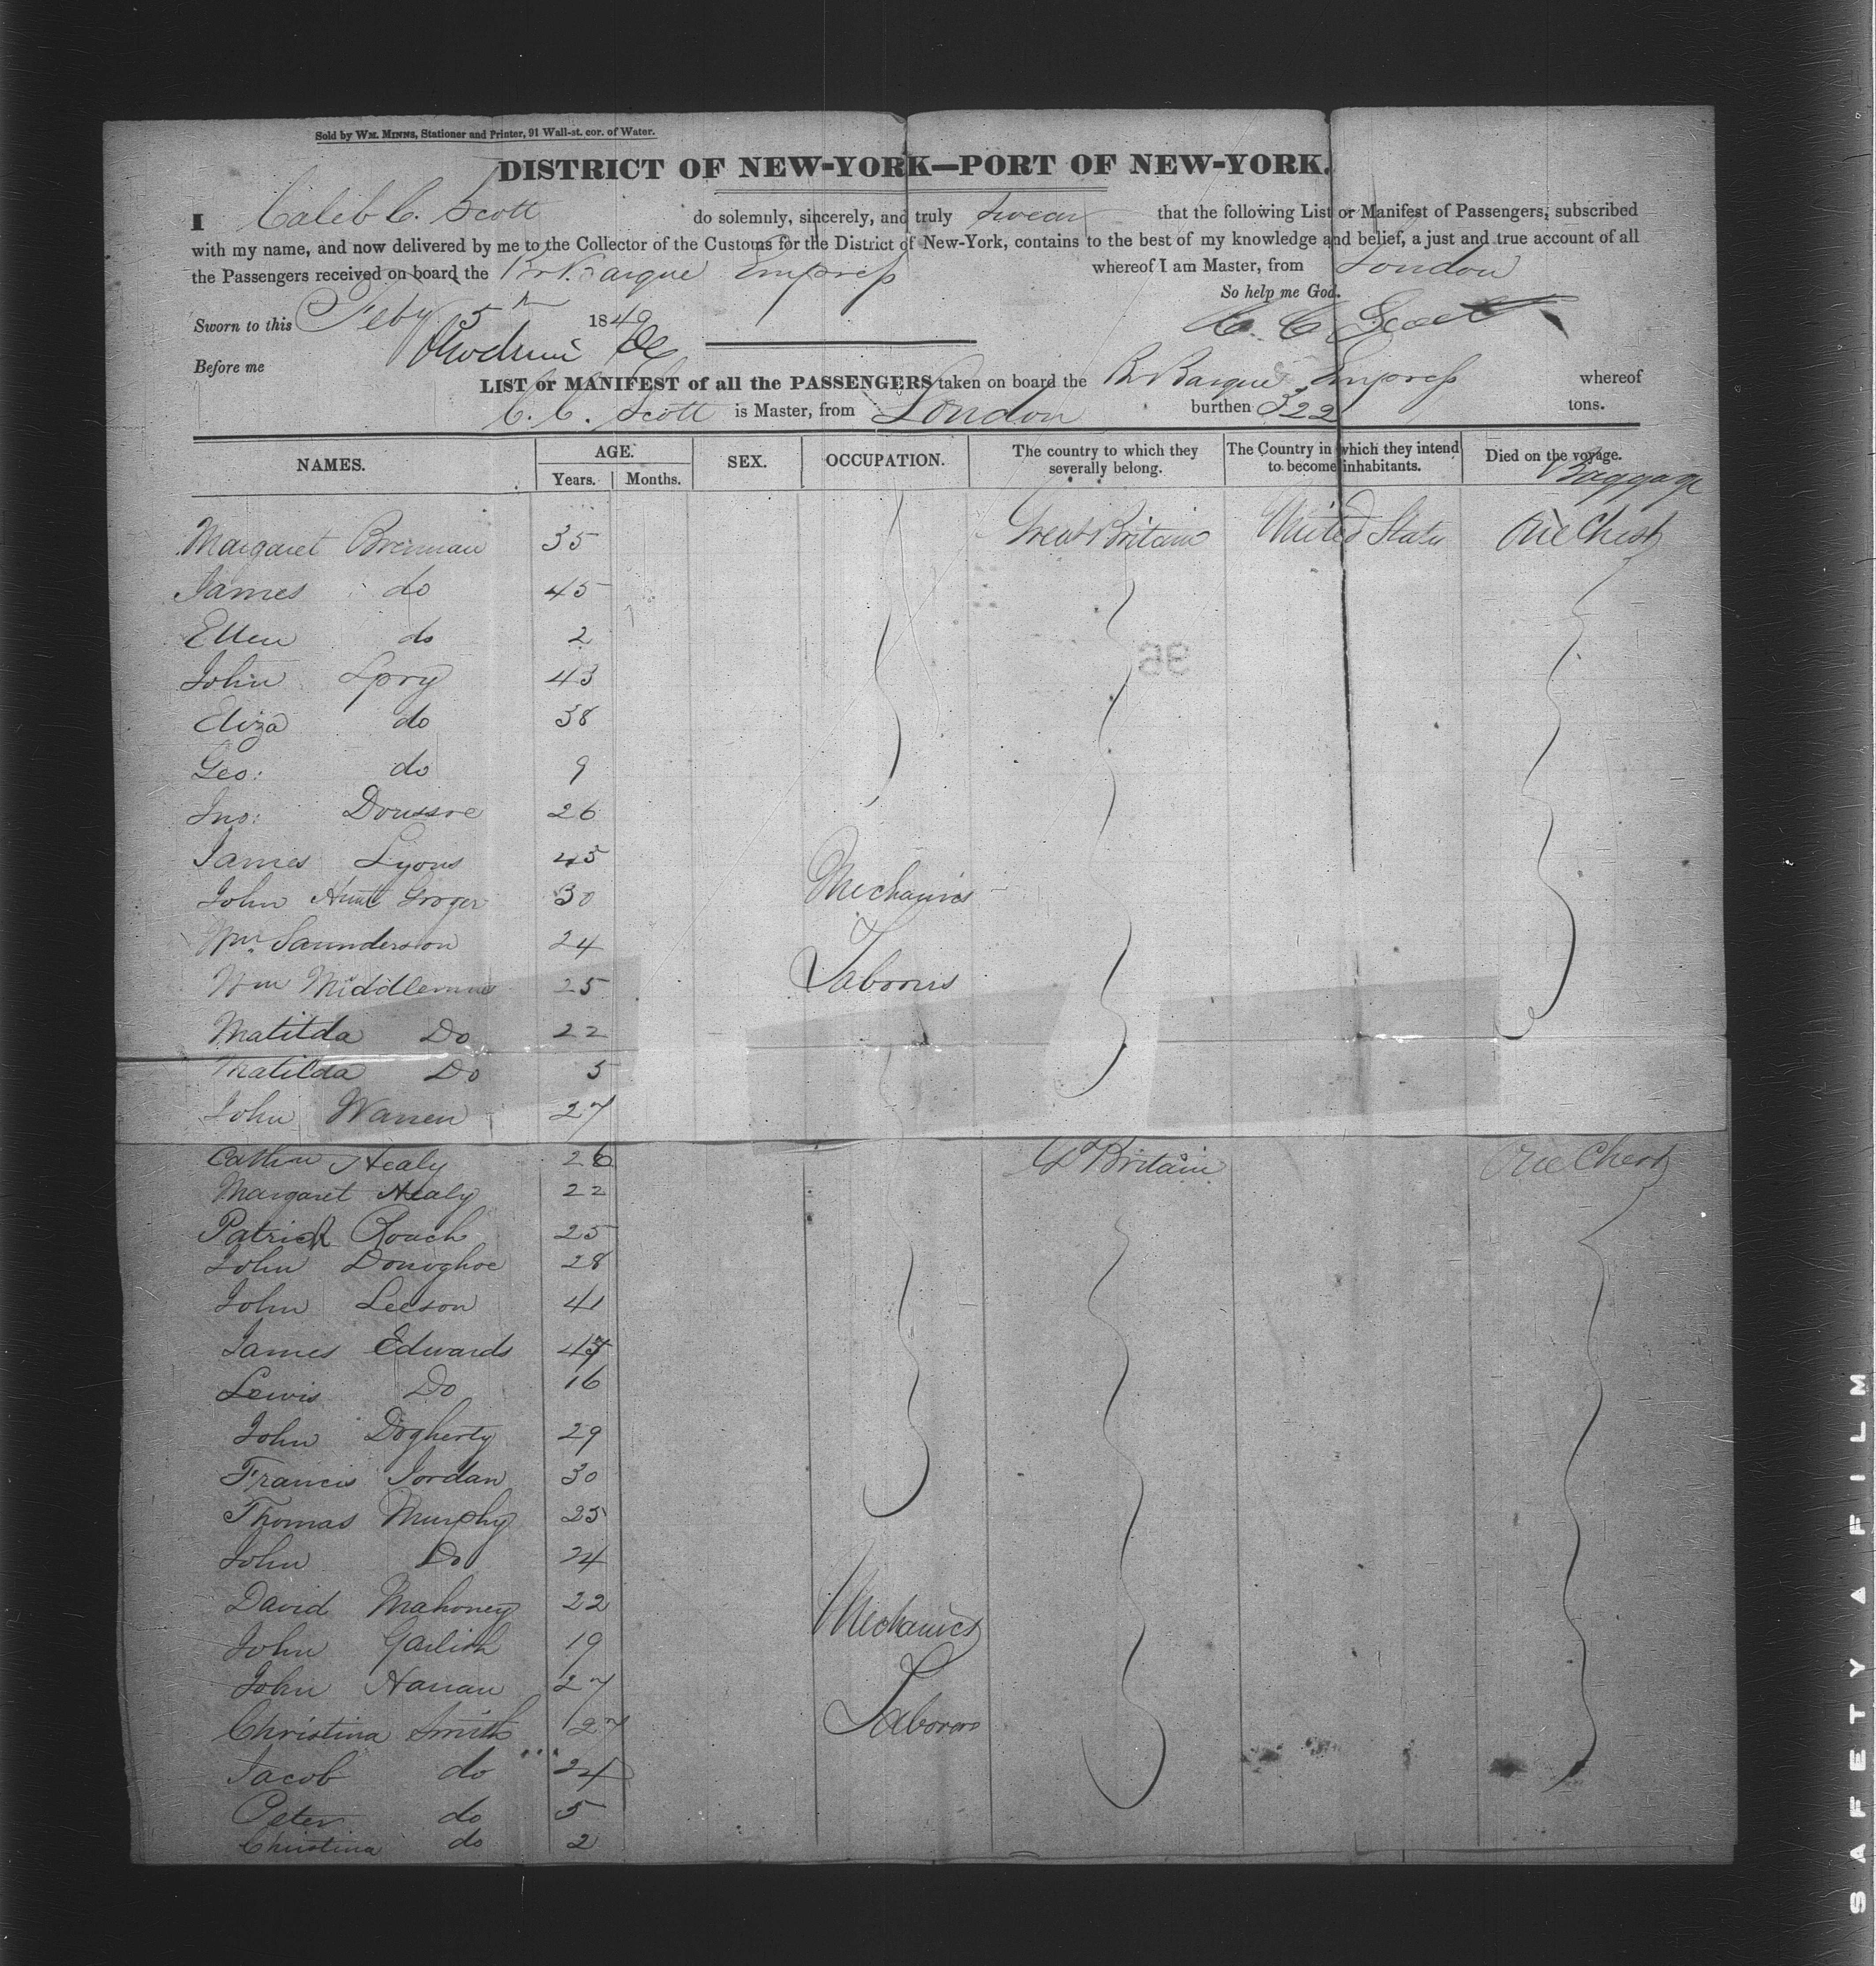 Sold by WM. MINNS, Stationer and Printer, 91 Wall-st. cor. of Water.
DISTRICT OF NEW-YORK—PORT OF NEW-YORK.
I Caleb C. Scott do solemnly, sincerely, and truly swear that the following List or Manifest of Passengers, subscribed
with my name, and now delivered by me to the Collector of the Customs for the District of New-York, contains to the best of my knowledge and belief, a just and true account of all
the Passengers received on board the Br. Barque Empress whereof I am Master, from London
So help me God.
Sworn to this Feby 5th 1849 C. C. Scott
Before me
LIST or MANIFEST of all the PASSENGERS taken on board the Br Barque Empress whereof
C. C. Scott is Master, from London burthen 322 tons.
NAMES. AGE. Years. Months. SEX. OCCUPATION. The country to which they severally belong. The Country in which they intend to become inhabitants. Died on the voyage. Baggage
Margaret Brennan 35 Great Britain United States One Chest
James do 45
Ellen do 2
John Spry 43
Eliza do 38
Geo: do 9
Jno: 26
James Lyons 45
John Hunt Groger 30 Mechanics
Wm Saunderson 24
Wm 25 Laborers
Matilda Do 22
Matilda Do 5
John Warren 27
Healy 26 Gt Britain One Chest
Margaret Healy 22
Patrick Roach 25
John Donoghoe 28
John Leeson 41
James Edwards
Lewis Do 16
John Dogherty 29
Francis Jordan 30
Thomas Murphy 25
John Do 24
David Mahoney 22 Mechanics
John 19
John Hanan 27
Christina Smith 27 Laborers
Jacob do 24
Peter do 5
Christina do 2
SAFETY A FILM